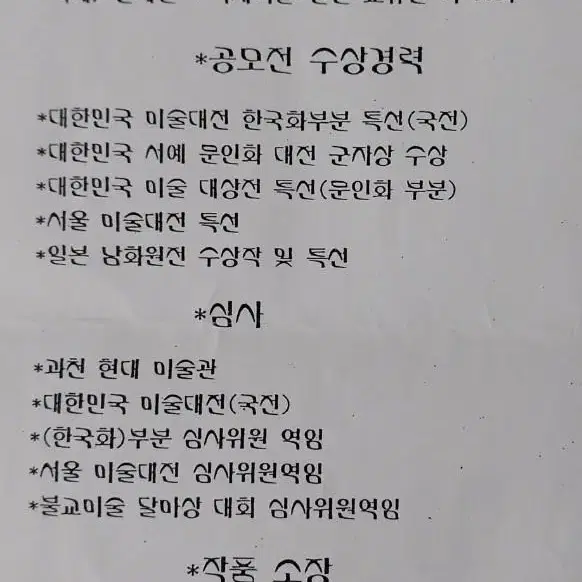 *공모전 수상경력
*대한민국 미술대전 한국화부분 특선(국전)
*대한민국 서예 문인화 대전 군자상 수상
*대한민국 미술 대상전 특선(문인화 부분)
*서울 미술대전 특선
*일본 남화원전 수상작 및 특선
*심사
*과천 현대 미술관
*대한민국 미술대전(국전)
*(한국화)부분 심사위원 역임
*서울 미술대전 심사위원역임
*불교미술 달마상 대회 심사위원역임
*작품 소장